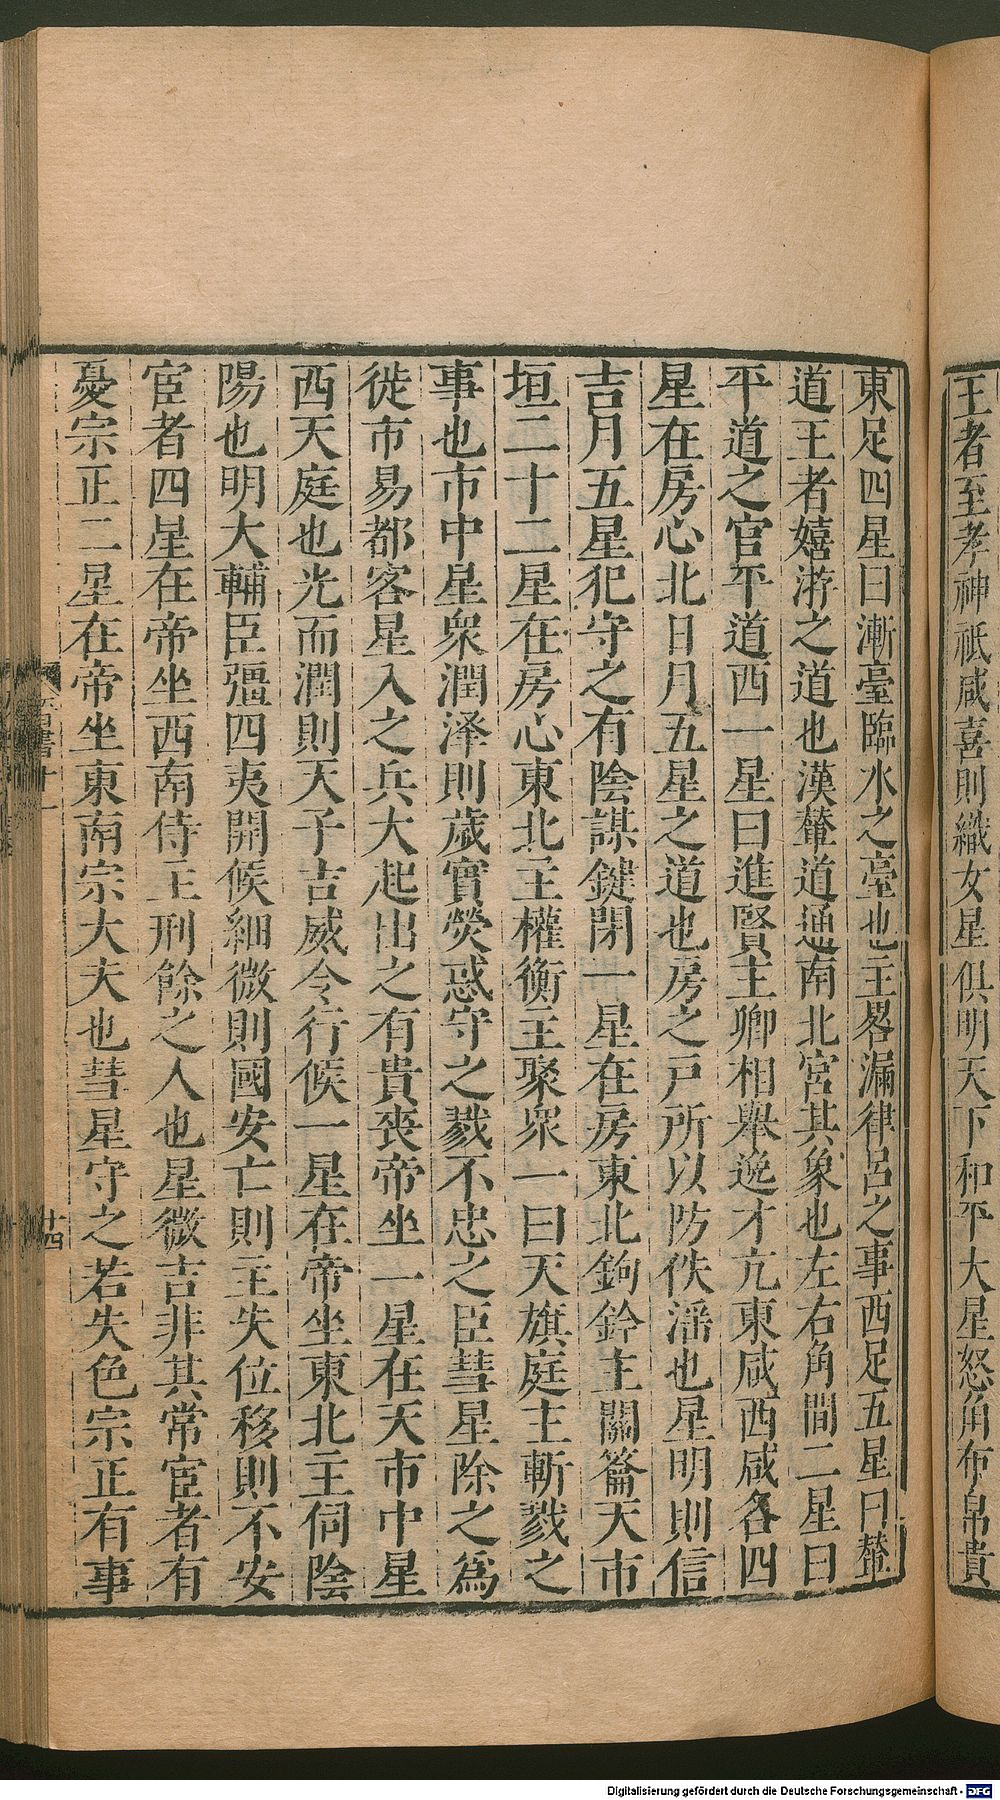 王者至孝神祇咸喜則織女星俱明天下和平大星怒角布帛貴
東足四星曰漸臺臨水之臺也主晷漏律呂之事西足五星曰輦
道王者嬉游之道也漢輦道通南北宮其象也左右角間二星曰
平道之官平道西一星曰進賢主卿相舉逸才亢東咸西咸各四
星在房心北日月五星之道也房之戸所以防佚淫也星明則信
吉月五星犯守之有陰謀鍵閉一星在房東北鉤鈐主關籥天市
垣二十二星在房心東北主權衡主聚衆一曰天旗庭主斬戮之
事也市中星衆潤泽則歲實熒惑守之戮不忠之臣彗星除之爲
徙市易都客星入之兵大起出之有貴喪帝坐一星在天市中星
西天庭也光而潤則天子吉威令行候一星在帝坐東北主伺陰
陽也明大輔臣彊四夷開候細微則國安亡則主失位移則不安
宦者四星在帝坐西南侍主刑餘之人也星微吉非其常宦者有
憂宗正二星在帝坐東南宗大夫也彗星守之若失色宗正有事
十四
Digitalisierung gefördert durch die Deutsche Forschungsgemeinschaft - DFG